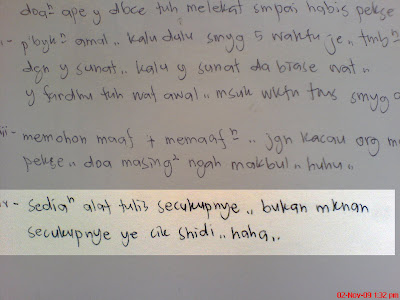 doaⁿ ape y dbce tuh melekat smpai habis pekse
- p'bykⁿ amal,, kalu dulu smyg 5 waktu je,, tmbⁿ
dgn y sunat,, kalu y sunat da biase wat,,
y fardhu tuh wat awal,, msuk wktu trus smyg
- memohon maaf + memaafⁿ,, jgn kacau org
pekse,, doa masing² ngah makbul,, huhu,,
iv - sediaⁿ alat tulis secukupnye,, bukan mknan
secukupnye ye cik shidi,, haha,,
02-Nov-09 1:32 pm